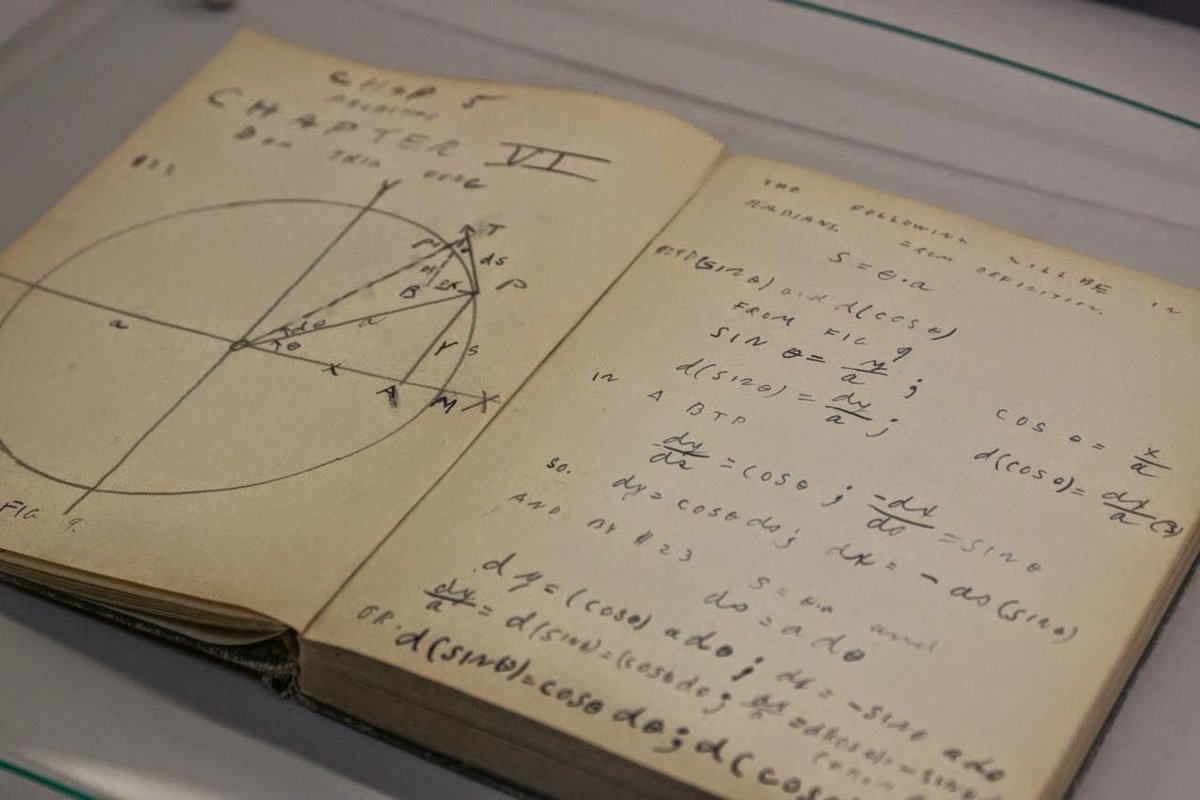 CHAP 5
CHAPTER VI
Y
T
ds
P
B
dθ
a
a
θ
Y
S
X
A
M
X
FIG 9.
THE FOLLOWING WILL BE IN
RADIANS. FROM DEFINITION.
S = θ·a
d(sinθ) and d(cosθ)
FROM FIG 9
SIN θ = y/a ; COS θ = x/a
d(sinθ) = dy/a ; d(cosθ) = dx/a (3)
IN A BTP
dy/ds = cosθ ; -dx/ds = SINθ
SO. dy = cosθ ds ; dx = - ds (sinθ)
AND BY # 23 S = θ·a and
ds = a dθ
dy = (cosθ) a dθ ; dx = - SINθ a dθ
dy/a = d(sinθ) = (cosθ) dθ ;
OR. d(SINθ) = cosθ dθ ; d(cos